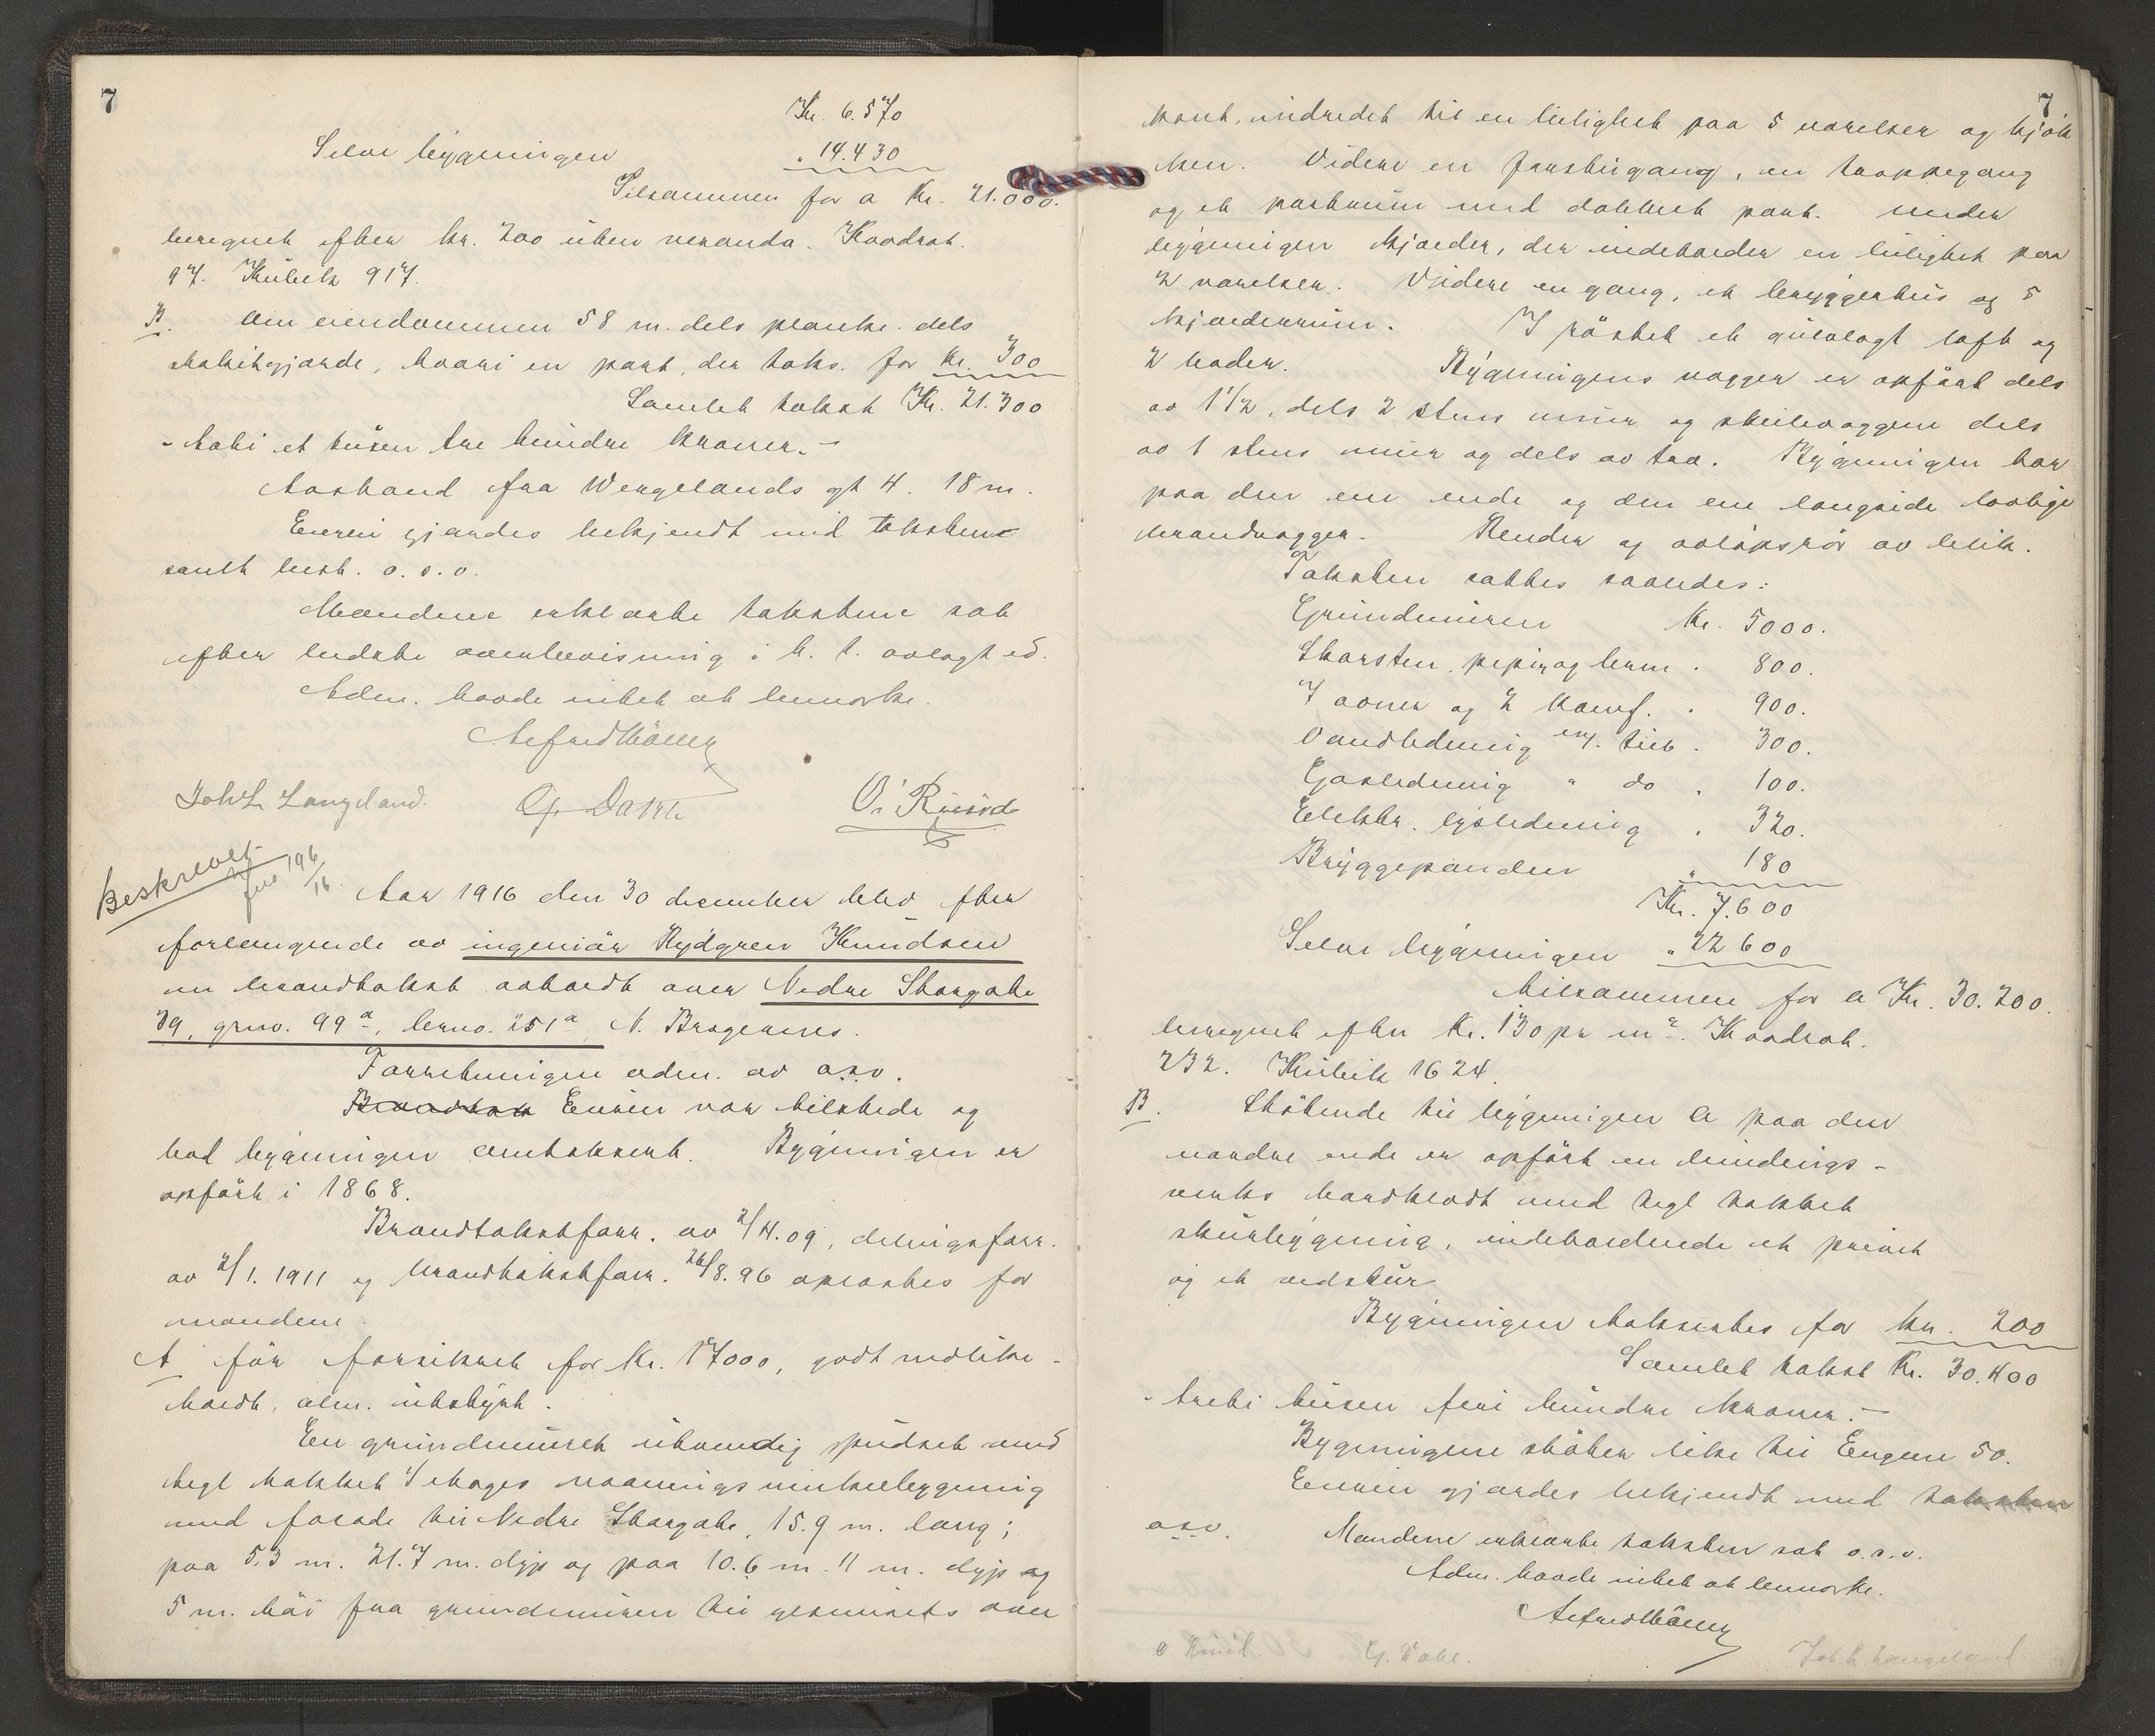 7
Kr. 6.570
Selve bygningen " 14.430
Tilsammen for a Kr. 21.000.
beregnet efter kr. 200 uten veranda. Kvadrat.
97. Kubik 917.
B. Om eiendommen 58 m. dels planke. dels
stakitgjærde, hvori en port, der taks. for kr. 300
Samlet takst Kr. 21.300
- tohi et tusen tre hundre kroner. -
Avstand fra Wergelands gt 4. 18 m.
Eieren gjordes bekjendt med taksten
samt best. o. s. v.
Mændene erklærte takstene sat
efter bedste overbevisning i h. t. avlagt ed.
Adm. havde intet at bemerke.
Alfred Møller
Joh. L. Langeland. G. Dahl O. Ruud
Beskrevet
jnr 196/16.
Aar 1916 den 30 december blev efter
forlangende av ingeniør Rydgren Knudsen
en brandtakst avholdt over Nedre Storgate
39, grno. 99a, brno. 251a, N. Bragernes.
Forretningen adm. av o.s.v.
Eieren var tilstede og
bad bygningen omtaksert. Bygningen er
opført i 1868.
Brandtakstforr. av 2/4.09, delingsforr.
av 2/1. 1911 og brandtakstforr. 26/8.96 oplæstes for
mændene.
A før forsikret for Kr. 17000, godt vedlike-
holdt, alm. utstyrt.
En grundmuret utvendig pudset med
tegl tækket 1 etages vaanings vinkelbygning
med facade til Nedre Storgate, 15.9 m. lang;
paa 5.3 m. 21.7 m. dyp og paa 10.6 m. 11 m. dyp og
5 m. høi fra grundmuren til gesimsets over
7
kant, indredet til en leilighet paa 5 værelser og kjøk
ken. Videre en forstugang, en trappegang
og et portrum med dobbelt port. Under
bygningen kjælder, der indeholder en leilighet paa
2 værelser. Videre en gang, et bryggerhus og 5
kjælderrum. I røstet et gulvlagt loft og
2 boder. Bygningens vægger er opført dels
av 1 1/2, dels 2 stens mur og skillevæggene dels
av 1 stens mur og dels av træ. Bygningen har
paa den ene ende og den ene langside lovlige
brandvægger. Render og avløpsrør av blik.
Taksten sattes saaledes:
Grundmuren kr. 5000.
Skorsten, piper og brm " 800.
7 ovner og 2 komf. " 900.
Vandledning m/ tilb. " 300.
Gasledning " do " 100.
Elektr. lysledning " 320.
Bryggepanden " 180
Kr. 7.600
Selve bygningen " 22 600
tilsammen for a Kr. 30.200.
beregnet efter Kr. 130 pr m². Kvadrat.
232. Kubik 1624.
B. Støtende til bygningen a paa den
nordre ende er opført en bindings-
verks bordklædt med tegl tækket
skurbygning, indeholdende et privet
og et vedskur
Bygningen takseres for kr. 200
Samlet takst Kr. 30.400
- treti tusen fire hundre kroner. -
Bygningene støter like til Engene 50.
Eieren gjordes bekjendt med taksten
o.s.v. Mændene erklærte taksten sat o.s.v.
Adm. havde intet at bemerke.
Alfred Møller
O Ruud. G. Dahl. Joh. L. Langeland